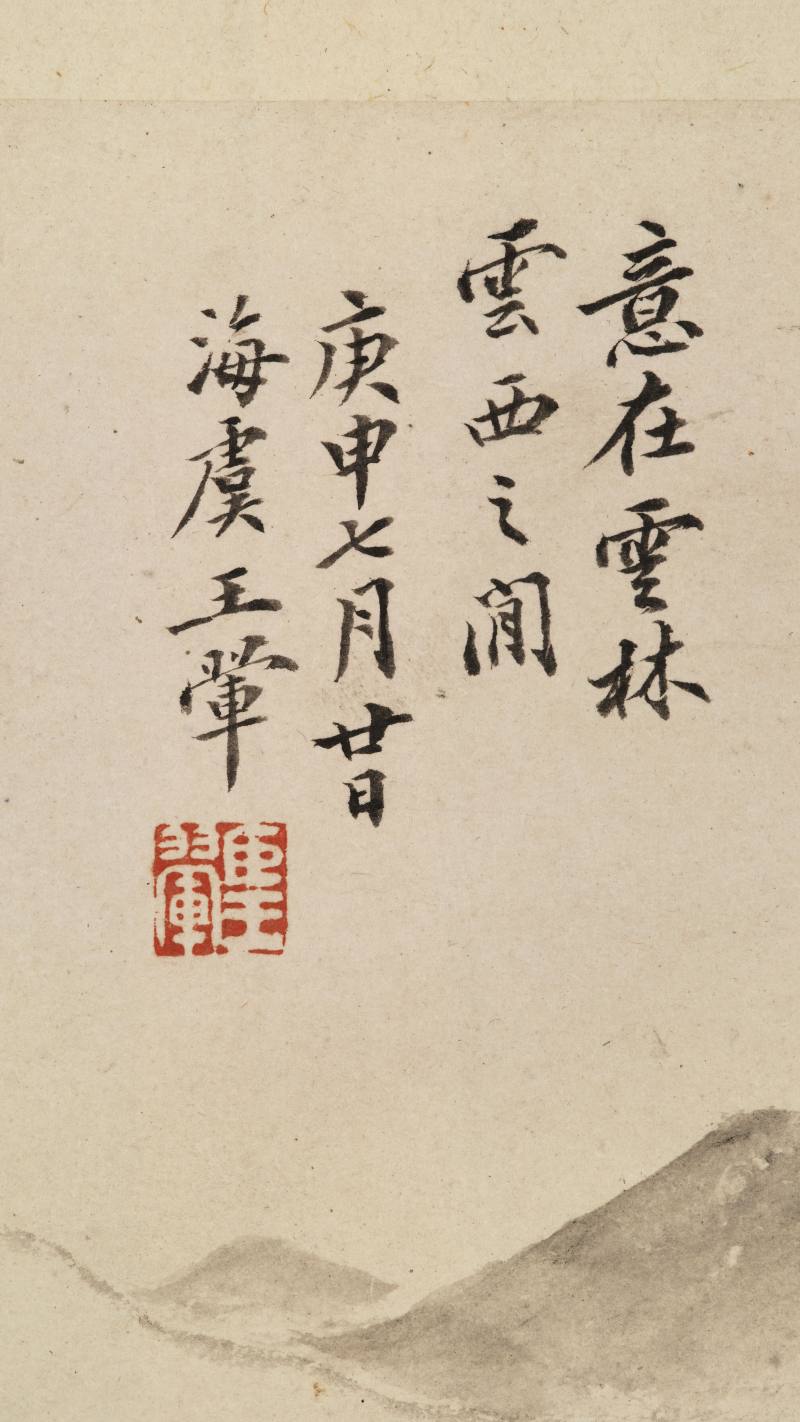 意在雲林
雲西之間
庚申七月廿日
海虞王翬